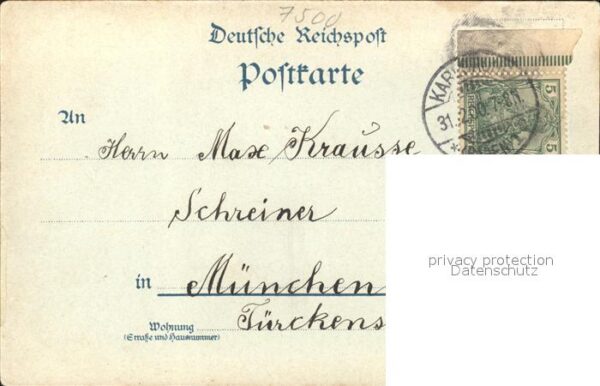 7500
Deutsche Reichspost
Postkarte
An
Herrn Max Krausse
Schreiner
in München
Türckens
Wohnung
(Straße und Hausnummer)
KAR
31.
5
5
privacy protection
Datenschutz